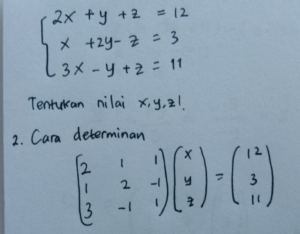 2x + y + z = 12
x + 2y - z = 3
3x - y + z = 11
Tentukan nilai x,y,z!
2. Cara determinan
(2 1 1
1 2 -1
3 -1 1) (x
y
z) = (12
3
11)